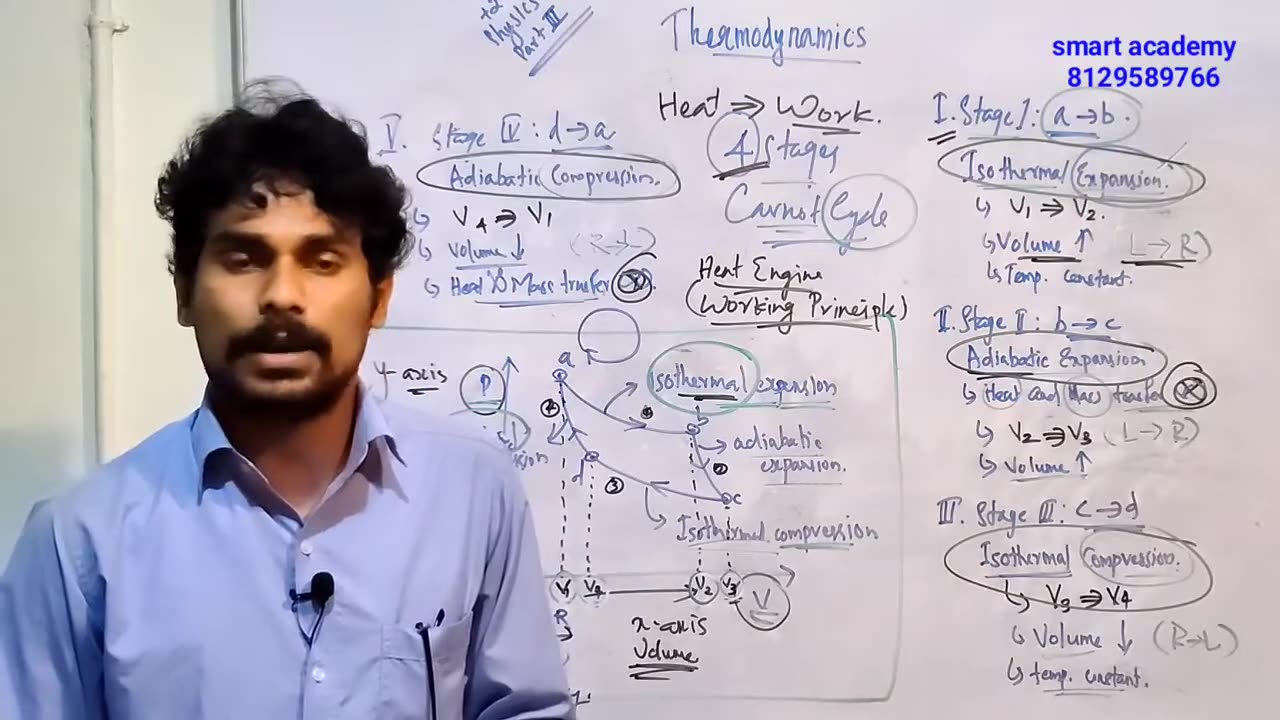 +2
Physics
Part III
Thermodynamics
smart academy
8129589766
Heat ⇒ Work.
4 Stages
Carnot Cycle
Heat Engine
(Working Principle)
V. Stage IV: d→a
Adiabatic Compression.
↳ V4 ⇒ V1
↳ Volume ↓ (R→L)
↳ Heat & Mass transfer ⊗.
I. Stage I: a→b.
Isothermal Expansion.
↳ V1 ⇒ V2.
↳ Volume ↑ L→R)
↳ Temp. constant.
II. Stage II: b→c
Adiabatic Expansion
↳ Heat and Mass transfer ⊗
↳ V2 ⇒ V3 (L→R)
↳ Volume ↑
III. Stage III: c→d
Isothermal Compression.
↳ V3 ⇒ V4
↳ Volume ↓ (R→L)
↳ temp. constant.
y-axis
P
a
isothermal expansion
b
adiabatic
expansion.
②
d
③
c
Isothermal compression
V1 V4 V2 V3 V
x-axis
Volume